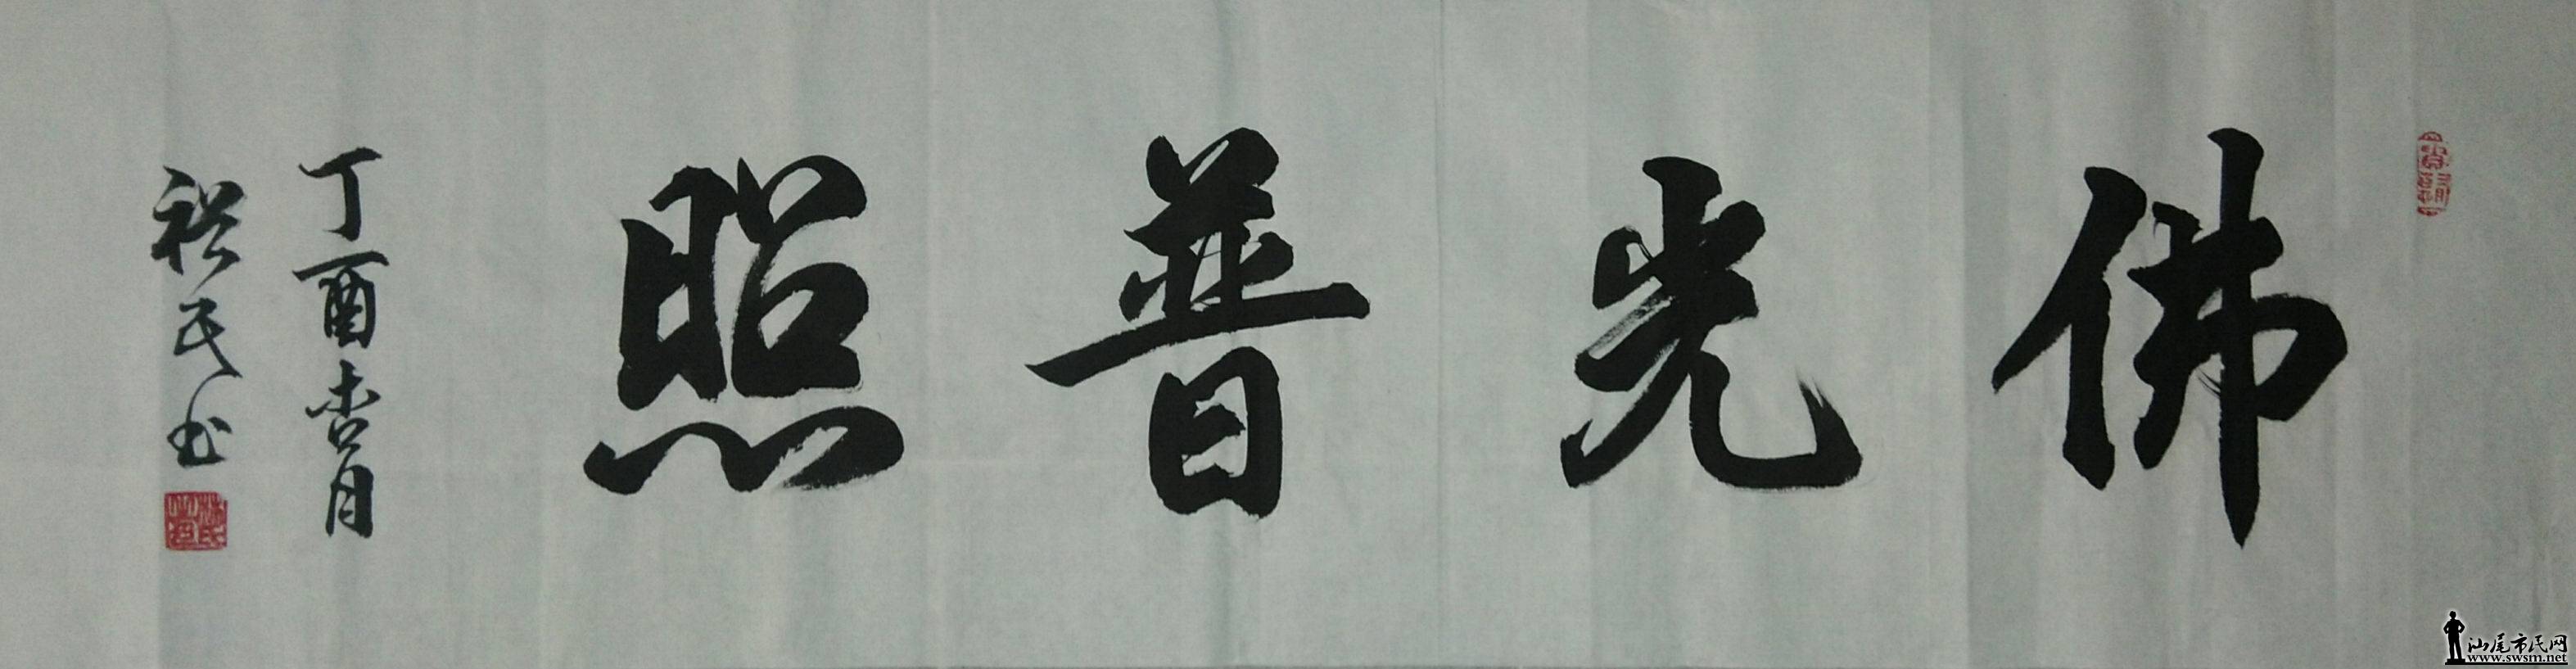 佛光普照
丁酉杏月
裕民书
汕尾市民网
www.swsm.net